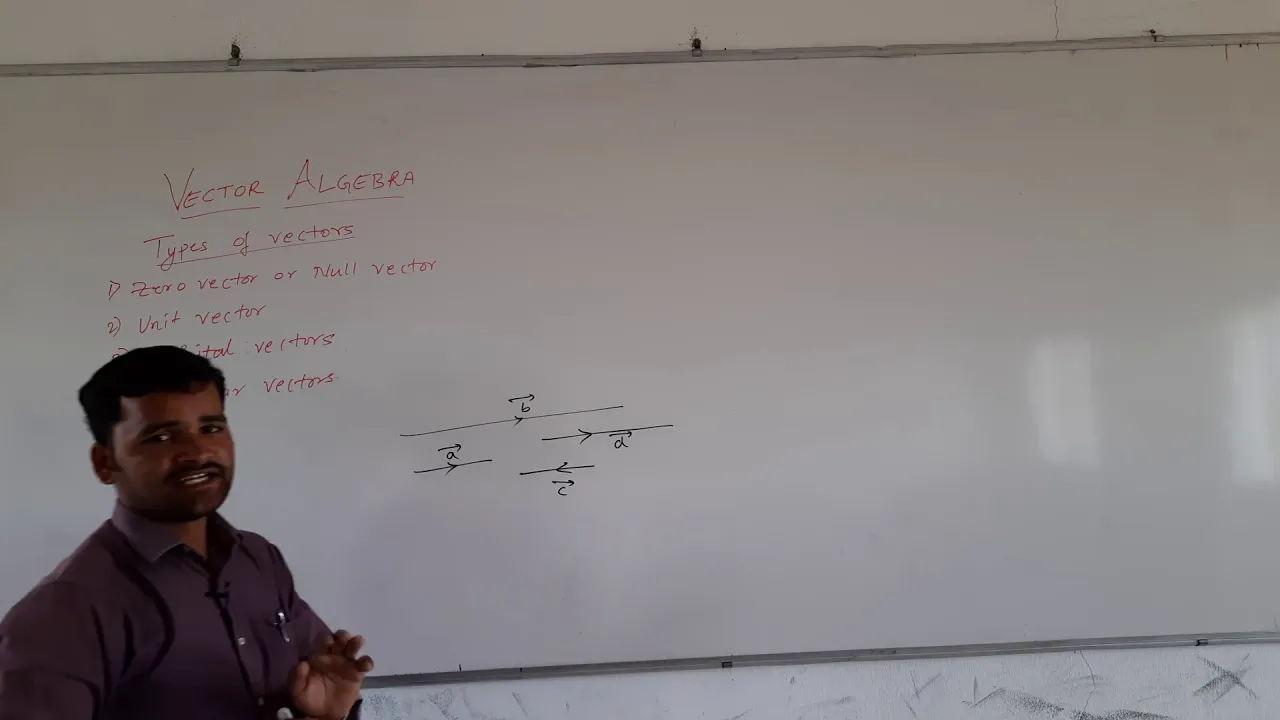 VECTOR ALGEBRA
Types of vectors
1) Zero vector or Null vector
2) Unit vector
vectors
vectors
b
a
d
c